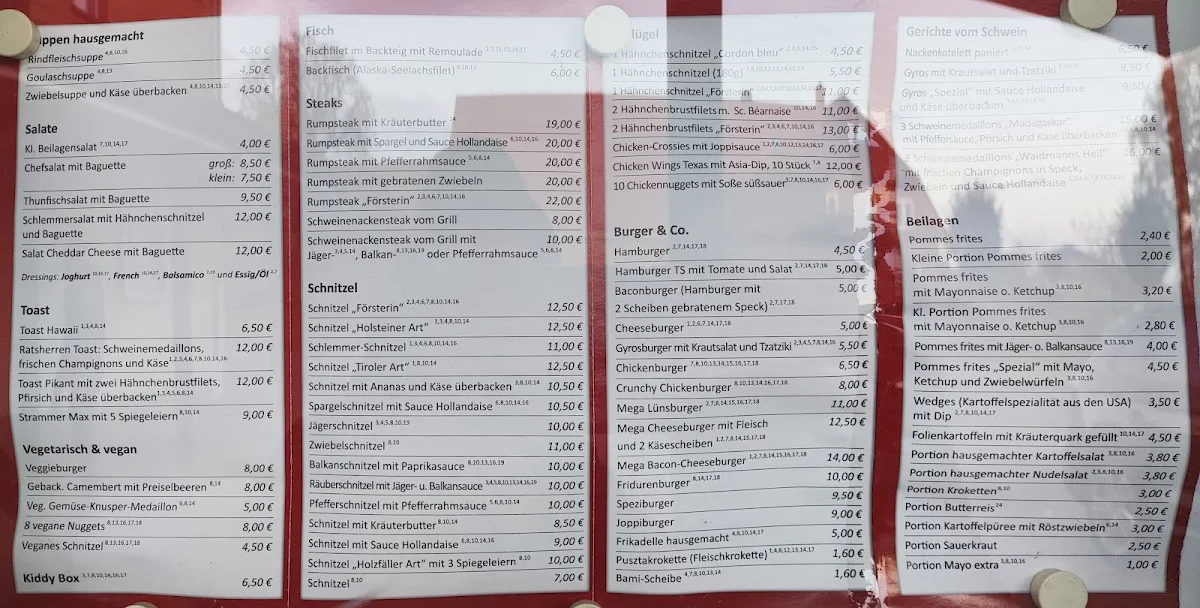 ppen hausgemacht
Rindfleischsuppe 4,8,10,16 4,50 €
Goulaschsuppe 4,8,13 4,50 €
Zwiebelsuppe und Käse überbacken 4,8,10,14,13,17 4,50 €
Salate
Kl. Beilagensalat 7,10,14,17 4,00 €
Chefsalat mit Baguette groß: 8,50 €
klein: 7,50 €
Thunfischsalat mit Baguette 9,50 €
Schlemmersalat mit Hähnchenschnitzel 12,00 €
und Baguette
Salat Cheddar Cheese mit Baguette 12,00 €
Dressings: Joghurt 10,14,17, French 10,14,17, Balsamico und Essig/Öl
Toast
Toast Hawaii 1,3,4,8,14 6,50 €
Ratsherren Toast: Schweinemedaillons, 12,00 €
frischen Champignons und Käse 1,2,3,4,6,7,8,10,14,16
Toast Pikant mit zwei Hähnchenbrustfilets, 12,00 €
Pfirsich und Käse überbacken 1,3,4,5,6,8,14
Strammer Max mit 5 Spiegeleiern 8,10,14 9,00 €
Vegetarisch & vegan
Veggieburger 8,00 €
Geback. Camembert mit Preiselbeeren 8,14 8,00 €
Veg. Gemüse-Knusper-Medaillon 6,8,14 5,00 €
8 vegane Nuggets 8,13,16,17,18 8,00 €
Veganes Schnitzel 8,13,16,17,18 4,50 €
Kiddy Box 3,7,8,10,14,16,17 6,50 €
Fisch
Fischfilet im Backteig mit Remoulade 4,50 €
Backfisch (Alaska-Seelachsfilet) 6,00 €
Steaks
Rumpsteak mit Kräuterbutter 14 19,00 €
Rumpsteak mit Spargel und Sauce Hollandaise 6,10,14,16 20,00 €
Rumpsteak mit Pfefferrahmsauce 5,6,8,14 20,00 €
Rumpsteak mit gebratenen Zwiebeln 20,00 €
Rumpsteak „Försterin“ 2,3,4,6,7,10,14,16 22,00 €
Schweinenackensteak vom Grill 8,00 €
Schweinenackensteak vom Grill mit 10,00 €
Jäger-3,4,5,14, Balkan-8,13,16,19 oder Pfefferrahmsauce 5,6,8,14
Schnitzel
Schnitzel „Försterin“ 2,3,4,6,7,8,10,14,16 12,50 €
Schnitzel „Holsteiner Art“ 1,3,4,8,10,14 12,50 €
Schlemmer-Schnitzel 1,3,4,6,8,10,14,16 11,00 €
Schnitzel „Tiroler Art“ 1,8,10,14 12,50 €
Schnitzel mit Ananas und Käse überbacken 3,8,10,14 10,50 €
Spargelschnitzel mit Sauce Hollandaise 6,8,10,14,16 10,50 €
Jägerschnitzel 3,4,5,8,10,19 10,00 €
Zwiebelschnitzel 8,10 11,00 €
Balkanschnitzel mit Paprikasauce 8,10,13,16,19 10,00 €
Räuberschnitzel mit Jäger- u. Balkansauce 3,4,5,8,10,13,14,16,19 10,00 €
Pfefferschnitzel mit Pfefferrahmsauce 5,6,8,10,14 10,00 €
Schnitzel mit Kräuterbutter 8,10,14 8,50 €
Schnitzel mit Sauce Hollandaise 6,8,10,14,16 9,00 €
Schnitzel „Holzfäller Art“ mit 3 Spiegeleiern 8,10 10,00 €
Schnitzel 8,10 7,00 €
lügel
1 Hähnchenschnitzel „Cordon bleu“ 2,7,8,14,16 4,50 €
1 Hähnchenschnitzel (180g) 5,50 €
1 Hähnchenschnitzel „Försterin“ 11,00 €
2 Hähnchenbrustfilets m. Sc. Béarnaise 10,14,16 11,00 €
2 Hähnchenbrustfilets „Försterin“ 2,3,4,6,7,10,14,16 13,00 €
Chicken-Crossies mit Joppisauce 1,2,7,8,10,12,13,14,16,17 6,00 €
Chicken Wings Texas mit Asia-Dip, 10 Stück 7,8 12,00 €
10 Chickennuggets mit Soße süßsauer 3,7,8,10,14,16,17 6,00 €
Burger & Co.
Hamburger 2,7,14,17,18 4,50 €
Hamburger TS mit Tomate und Salat 2,7,14,17,18 5,00 €
Baconburger (Hamburger mit 5,00 €
2 Scheiben gebratenem Speck) 2,7,17,18
Cheeseburger 1,2,6,7,14,17,18 5,00 €
Gyrosburger mit Krautsalat und Tzatziki 2,3,4,5,7,8,14,16 5,50 €
Chickenburger 7,8,10,13,14,15,16,17,18 6,50 €
Crunchy Chickenburger 8,10,13,14,16,17,18 8,00 €
Mega Lünsburger 2,7,8,14,15,16,17,18 11,00 €
Mega Cheeseburger mit Fleisch 12,50 €
und 2 Käsescheiben 1,2,7,8,14,15,17,18
Mega Bacon-Cheeseburger 1,2,7,8,14,15,16,17,18 14,00 €
Fridurenburger 8,14,17,18 10,00 €
Speziburger 9,50 €
Joppiburger 9,00 €
Frikadelle hausgemacht 4,8,10,14,17 5,00 €
Pusztakrokette (Fleischkrokette) 1,4,8,12,13,14,17 1,60 €
Bami-Scheibe 4,7,8,10,13,14 1,60 €
Gerichte vom Schwein
Nackenkotelett paniert 6,50 €
Gyros mit Krautsalat und Tzatziki 8,50 €
Gyros „Spezial“ mit Sauce Hollandaise 9,50 €
und Käse überbacken
3 Schweinemedaillons „Madagaskar“ 15,00 €
mit Pfeffersauce, Pfirsich und Käse überbacken
3 Schweinemedaillons „Waidmanns Heil“ 16,00 €
mit frischen Champignons in Speck,
Zwiebeln und Sauce Hollandaise
Beilagen
Pommes frites 2,40 €
Kleine Portion Pommes frites 2,00 €
Pommes frites
mit Mayonnaise o. Ketchup 3,8,10,16 3,20 €
Kl. Portion Pommes frites
mit Mayonnaise o. Ketchup 3,8,10,16 2,80 €
Pommes frites mit Jäger- o. Balkansauce 8,13,16,19 4,00 €
Pommes frites „Spezial“ mit Mayo, 4,50 €
Ketchup und Zwiebelwürfeln 3,8,10,16
Wedges (Kartoffelspezialität aus den USA) 3,50 €
mit Dip 2,7,8,10,14,17
Folienkartoffeln mit Kräuterquark gefüllt 10,14,17 4,50 €
Portion hausgemachter Kartoffelsalat 3,8,10,16 3,80 €
Portion hausgemachter Nudelsalat 2,3,8,10,16 3,80 €
Portion Kroketten 8,10 3,00 €
Portion Butterreis 14 2,50 €
Portion Kartoffelpüree mit Röstzwiebeln 6,14 3,00 €
Portion Sauerkraut 2,50 €
Portion Mayo extra 3,8,10,16 1,00 €